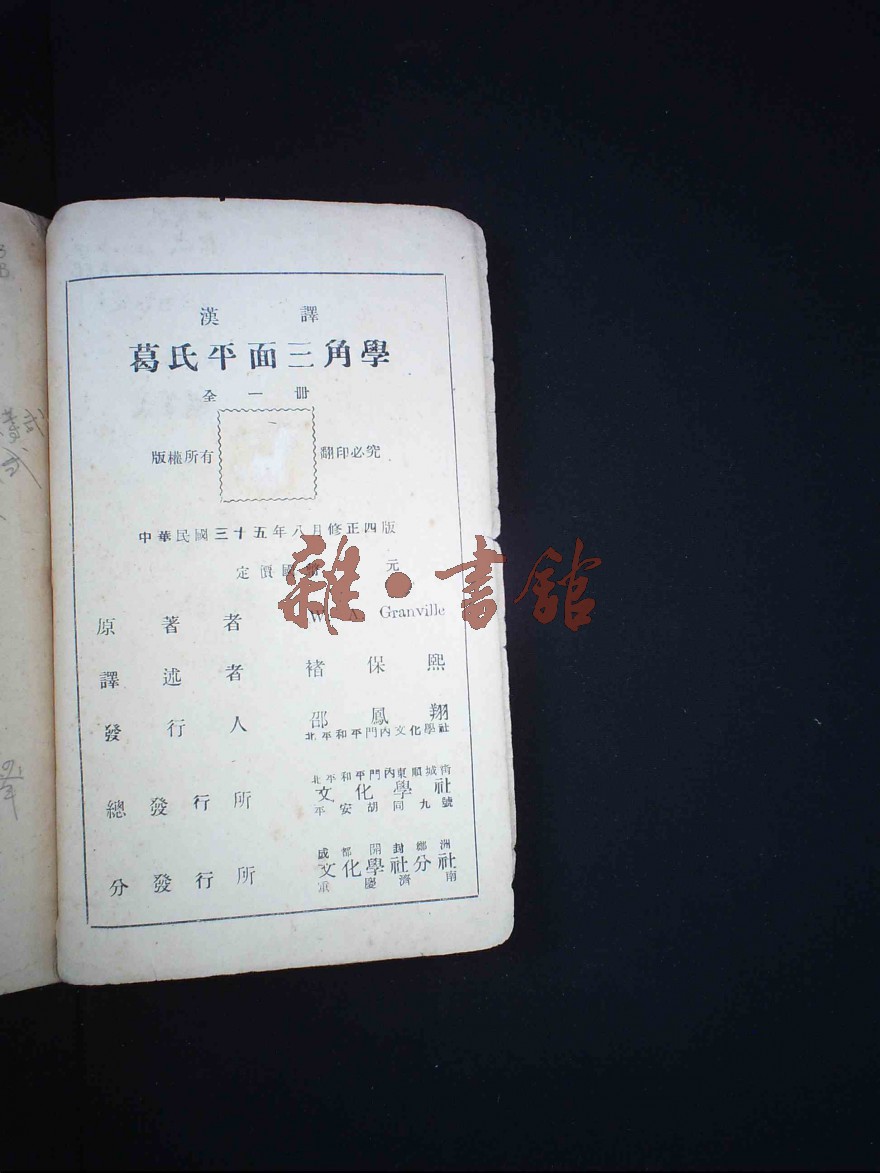 漢譯
葛氏平面三角學
全一冊
版權所有 翻印必究
中華民國三十五年八月修正四版
定價國幣 元
雜·書館
原著者 W. A. Granville
譯述者 褚保熙
發行人 邵鳳翔
北平和平門內文化學社
北平和平門內東順城街
總發行所 文化學社
平安胡同九號
成都開封鄭洲
分發行所 文化學社分社
重慶濟南